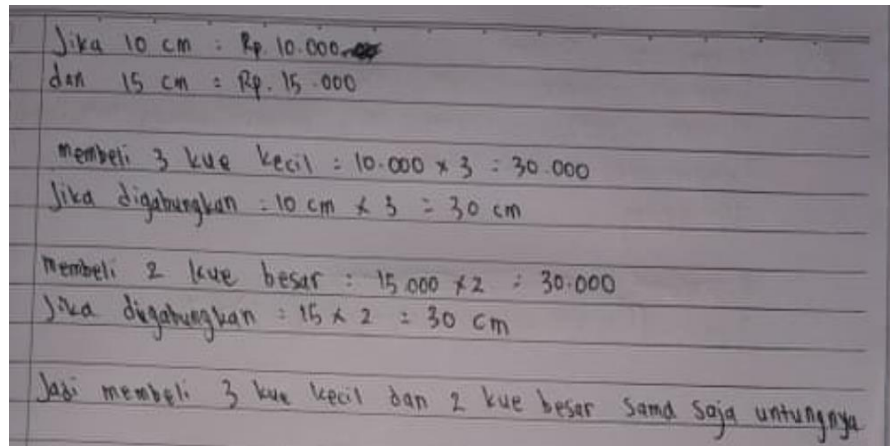 Jika 10 cm = Rp. 10.000
dan 15 cm = Rp. 15.000
membeli 3 kue kecil = 10.000 x 3 = 30.000
Jika digabungkan = 10 cm x 3 = 30 cm
Membeli 2 kue besar = 15.000 x 2 = 30.000
Jika digabungkan = 15 x 2 = 30 cm
Jadi membeli 3 kue kecil dan 2 kue besar sama saja untungnya